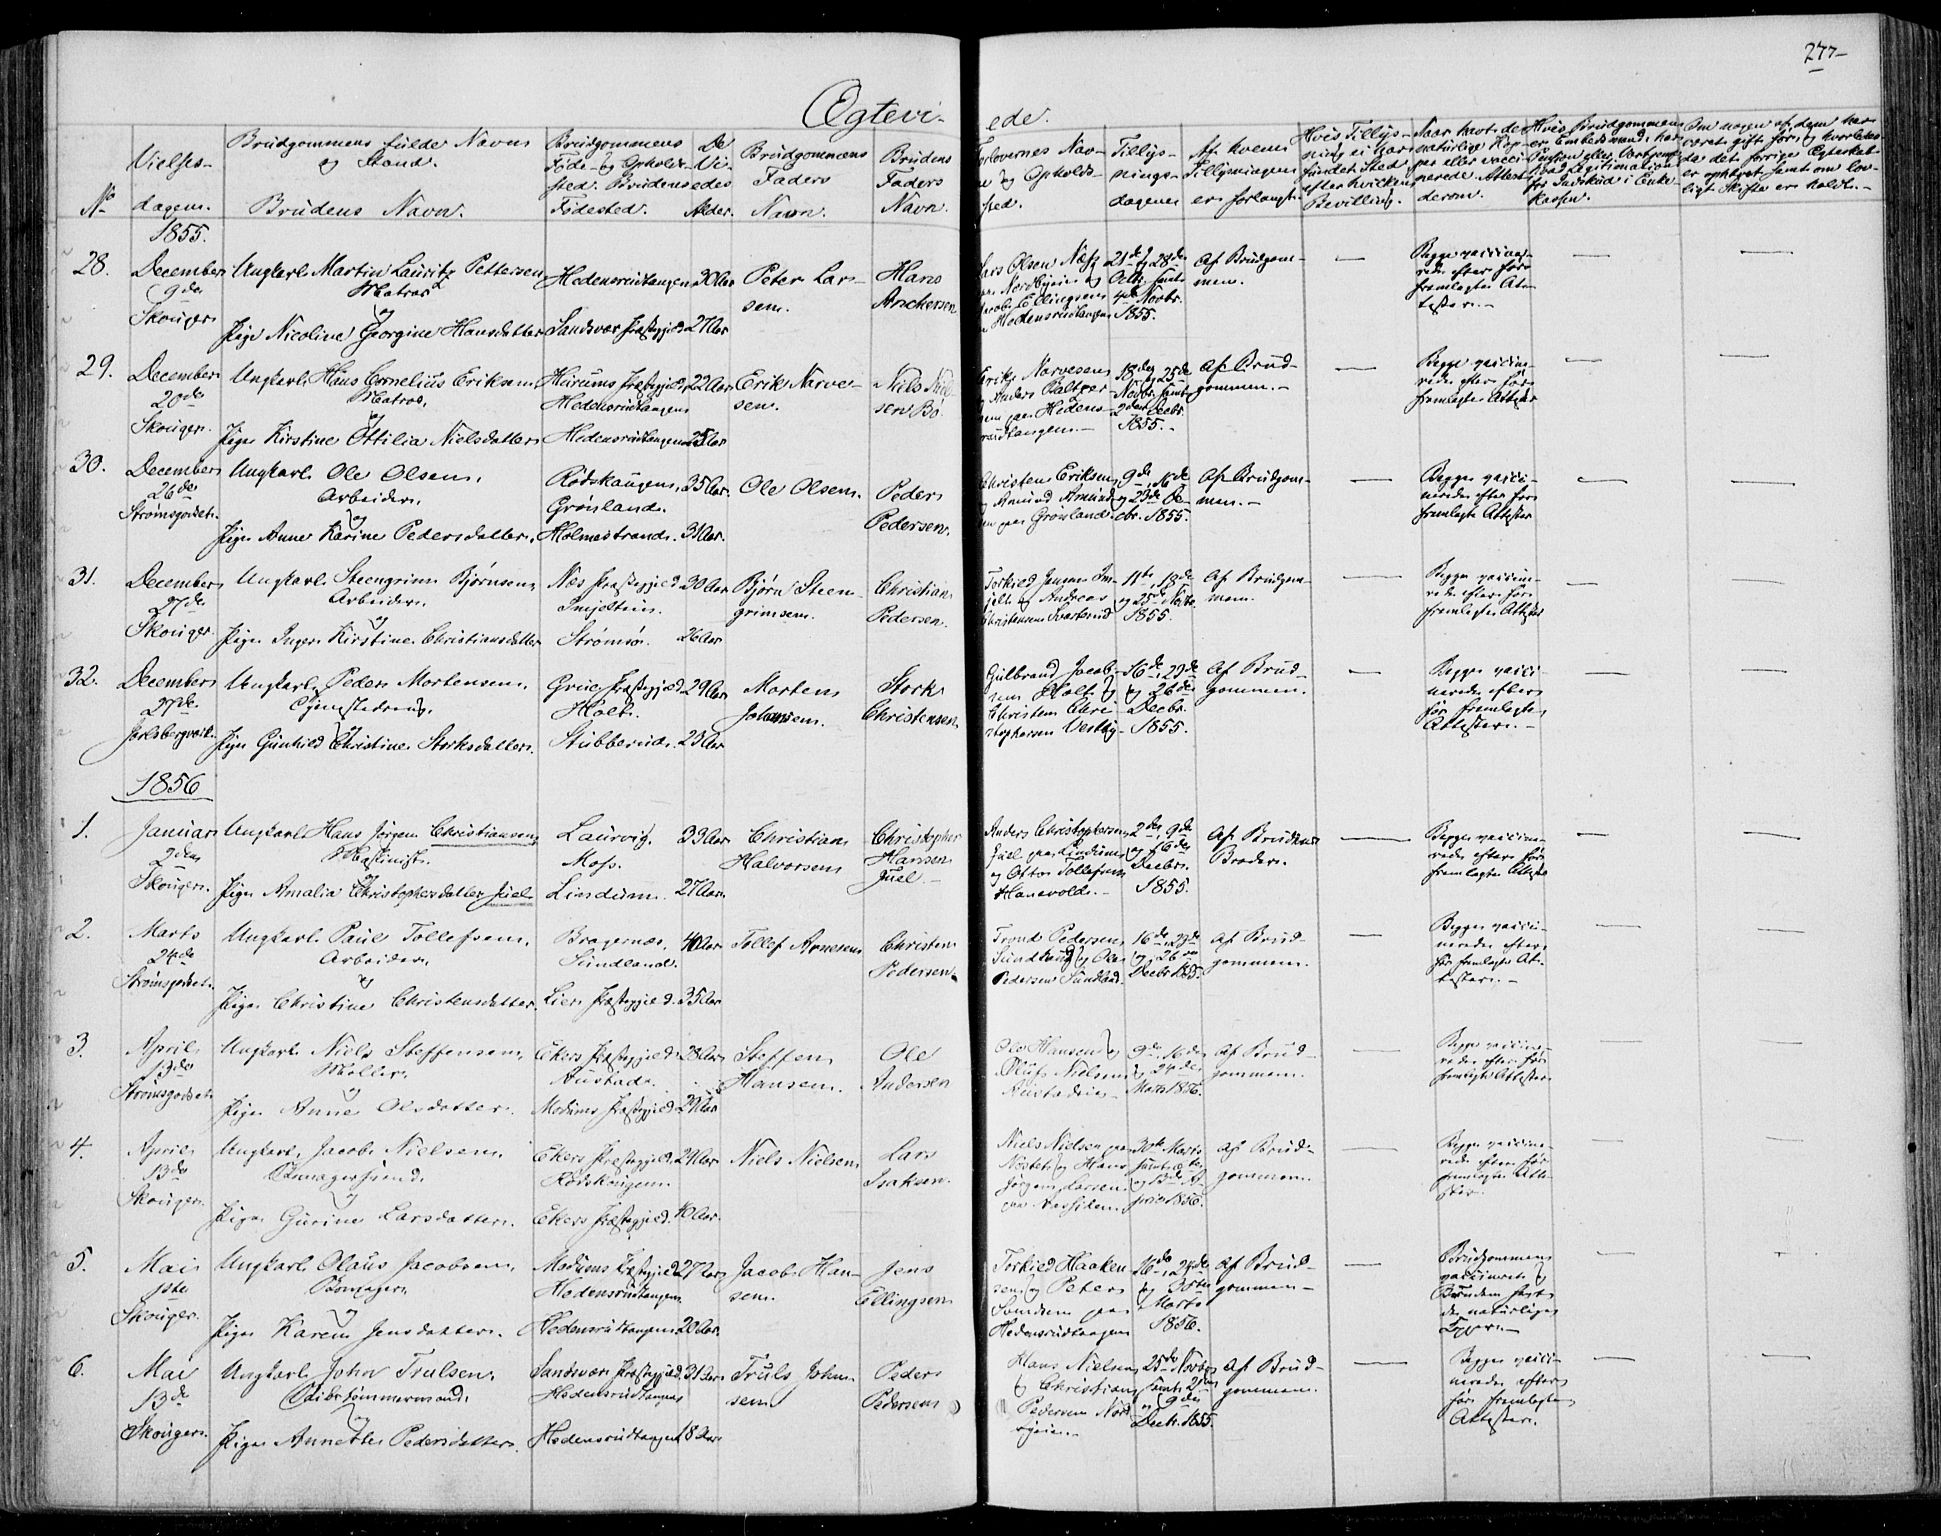 277
Ægteviede.
No
Vielses-
dagen.
Brudgommens fulde Navn
og Stand.
Brudens Navn.
Brudgommens
Føde- og Opholds-
sted. Brudens
Fødested.
De
Vi-
edes
Alder.
Brudgommens
Faders
Navn.
Brudens
Faders
Navn.
Forlovernes Nav-
ne og Opholds-
sted.
Tillys-
nings-
dagene
Af hvem
Tillysningen
er forlangt.
Hvis Tillys-
ning ei har
fundet Sted,
efter hvilken
Bevilling.
Naar havt de
naturlige Kop-
per eller vacci-
nerede. Attest
derom.
Hvis Brudgommen
er Embedsmand, har
for Indskud i Enke-
kassen.
Om nogen af dem har
været gift før, og hvorledes
da det forrige Ægteskab
er ophævet samt om lov-
ligt Skifte er holdt.
1855.
28.
December
9de
Skouger.
Ungkarl Martin Lauritz Pettersen
Matros
og
Pige Nicoline Georgine Hansdatter
Hedensrudtangen
Sandsvær Præstegjeld
30 Aar
27 Aar
Peter Lar-
sen.
Hans
Anchersen
Lars Olsen Næss
paa Nordbyeien og
Jacob Ellingsen
Hedensrudtangen
21de og 28de
Octbr. samt
4de Novbr.
1855.
Af Brudgom-
men.
Begge vaccine-
rede efter före
fremlagte At-
tester.
29.
December
20de
Skouger.
Ungkarl Hans Cornelius Eriksen,
Matros,
og
Pige Kirstine Ottilia Nielsdatter
Præstegjeld
Hedensrudtangen
Hedensrudtangen
22 Aar
25 Aar
Erik Narve-
sen.
Niels Niel-
sen Bö
Erik Narvesen
og Anders Baltzer-
sen paa Hedens-
rudtangen.
18de og 25de
Novbr. samt
2den Decbr.
1855.
Af Brud-
gommen.
Begge vaccine-
rede efter före
fremlagte Attester
30.
December
26de
Strømsgodset.
Ungkarl Ole Olsen,
Arbeider,
og
Pige Anne Karine Pedersdatter,
Rødskougen,
Grønland.
Holmestrand.
35 Aar.
31 Aar.
Ole Olsen.
Peder
Pedersen.
Christen Eriksen
og Amund Amund-
sen paa Grønland
9de, 16de
og 23de De-
cbr. 1855.
Af Brudgom-
men.
Begge vacci-
nerede efter före
fremlagte Attester
31.
December
27de
Skouger.
Ungkarl Steengrim Bjørnsen,
Arbeider,
og
Pige Inger Kirstine Christiansdatter
Næs Præstegjeld
Strømsø.
30 Aar
26 Aar
Bjørn Steen-
grimsen.
Christian
Pedersen.
Torkild Jensen
og Andreas
Christensen
11te, 18de
og 25de Novbr.
1855.
Af Brudgom-
men.
Begge vaccine-
rede efter före
fremlagte Attester
32.
December
27de
Ungkarl Peder Mortensen,
og
Pige Gunhild Christine Storksdatter.
Grue Præstegjeld
Holt.
Stubberud.
29 Aar
23 Aar
Morten
Johansen.
Stork
Christensen
Gulbrand Jacob-
sen Holt og
Christen Chri-
stophersen Vestby
16de, 23de
og 26de
Decbr.
1855.
Af Brud-
gommen.
Begge vacci-
nerede efter
før fremlagte
Attester.
1856
1.
Januar
2den
Skouger.
Ungkarl Hans Jørgen Christiansen,
Maskinist.
og
Pige Amalia Christophersdatter Juel
Laurvig,
Moss.
Lindum.
33 Aar.
27 Aar.
Christian
Halvorsen
Christopher
Hansen
Juel
Anders Christophersen
Juel paa Lindum
og Otto Tollefsen
Hanevold.
2de, 9de
og 16de
Decbr.
1855.
Af Brudens
Broder.
Begge vaccine-
rede efter før
fremlagte Attester
2.
Marts
24de
Strømsgodset.
Ungkarl Paul Tollefsen,
Arbeider,
og
Pige Christine Christensdatter.
Bragernæs.
Sundland.
Lier Præstegjeld.
40 Aar
35 Aar.
Tollef Arnesen
Christen
Pedersen.
Trond Pedersen
Sundland og Ole
Pedersen Sundland.
16de, 23de
og 26de
Decbr. 1855.
Af Brud-
gommen.
Begge vacci-
nerede efter
før fremlagte At-
tester.
3.
April
13de
Strømsgodset
Ungkarl Niels Steffensen,
Møller.
og
Pige Anne Olsdatter.
Ekers Præstegjeld
Austad.
Modums Præstegjeld
28 Aar
29 Aar.
Steffen
Hansen.
Ole
Andersen
Ole Hansen og
Oluf Nielsen
Austadeie
9de, 16de
og 24de
Marts 1856.
Af Brud-
gommen.
Begge vaccine-
rede efter før
fremlagte Attester
4.
April
13de
Skouger.
Ungkarl Jacob Nielsen,
Bømagersvend.
og
Pige Gurine Larsdatter.
Ekers Præstegjeld.
Rødskougen.
Ekers Præstegjeld.
29 Aar.
40 Aar.
Niels Nielsen
Lars
Isaksen.
Niels Nielsen paa
Nøstet og Hans
Jørgen Larsen
30te Marts
samt
og 13de A-
pril 1856.
Af Brud-
gommen.
Begge vaccine-
rede efter før
fremlagte Atte-
ster.
5.
Mai
1ste
Skouger.
Ungkarl Olaus Jacobsen,
og
Pige Karen Jensdatter.
Modums Præstegjeld
Hedensrudtangen.
Hedensrudtangen
27 Aar
20 Aar.
Jacob Han-
sen.
Jens
Ellingsen
Torkied Haaken-
sen og Peter
Svendsen paa
Hedensrudtangen
16de, 24de
og 30te
Marts
1856.
Af Brud-
gommen
Brudgommen
vaccineret og
Bruden havt
de naturlige
Kopper.
6.
Mai
13de
Skouger.
Ungkarl John Trulsen,
Skibstømmermand,
og
Pige Annette Pedersdatter.
Sandsvær Præstegjeld.
Hedensrudtangen
Hedensrudtangen
31 Aar
18 Aar
Truls John-
sen
Peder
Pedersen
Hans Nielsen
og Christian
Pedersen Nord-
byeien.
25de Novbr.
samt 2den
og 9de
Decbr. 1855.
Af Brud-
gommen.
Begge vacci-
nerede efter
før fremlagte
Attester.